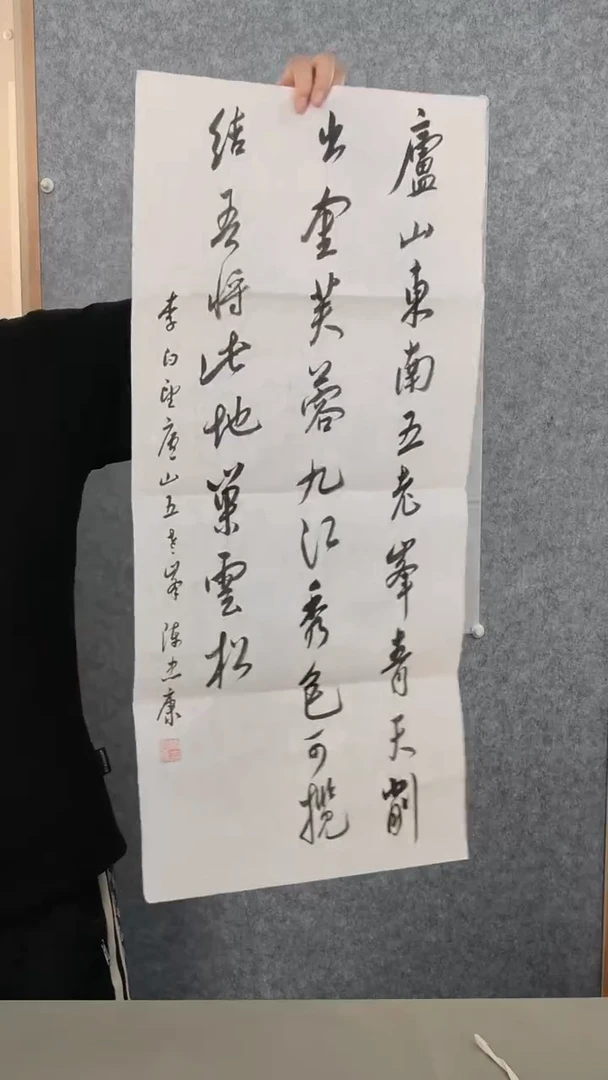 廬山東南五老峯青天削
出金芙蓉九江秀色可攬
結吾將此地巢雲松
李白望廬山五老峯 陈忠康